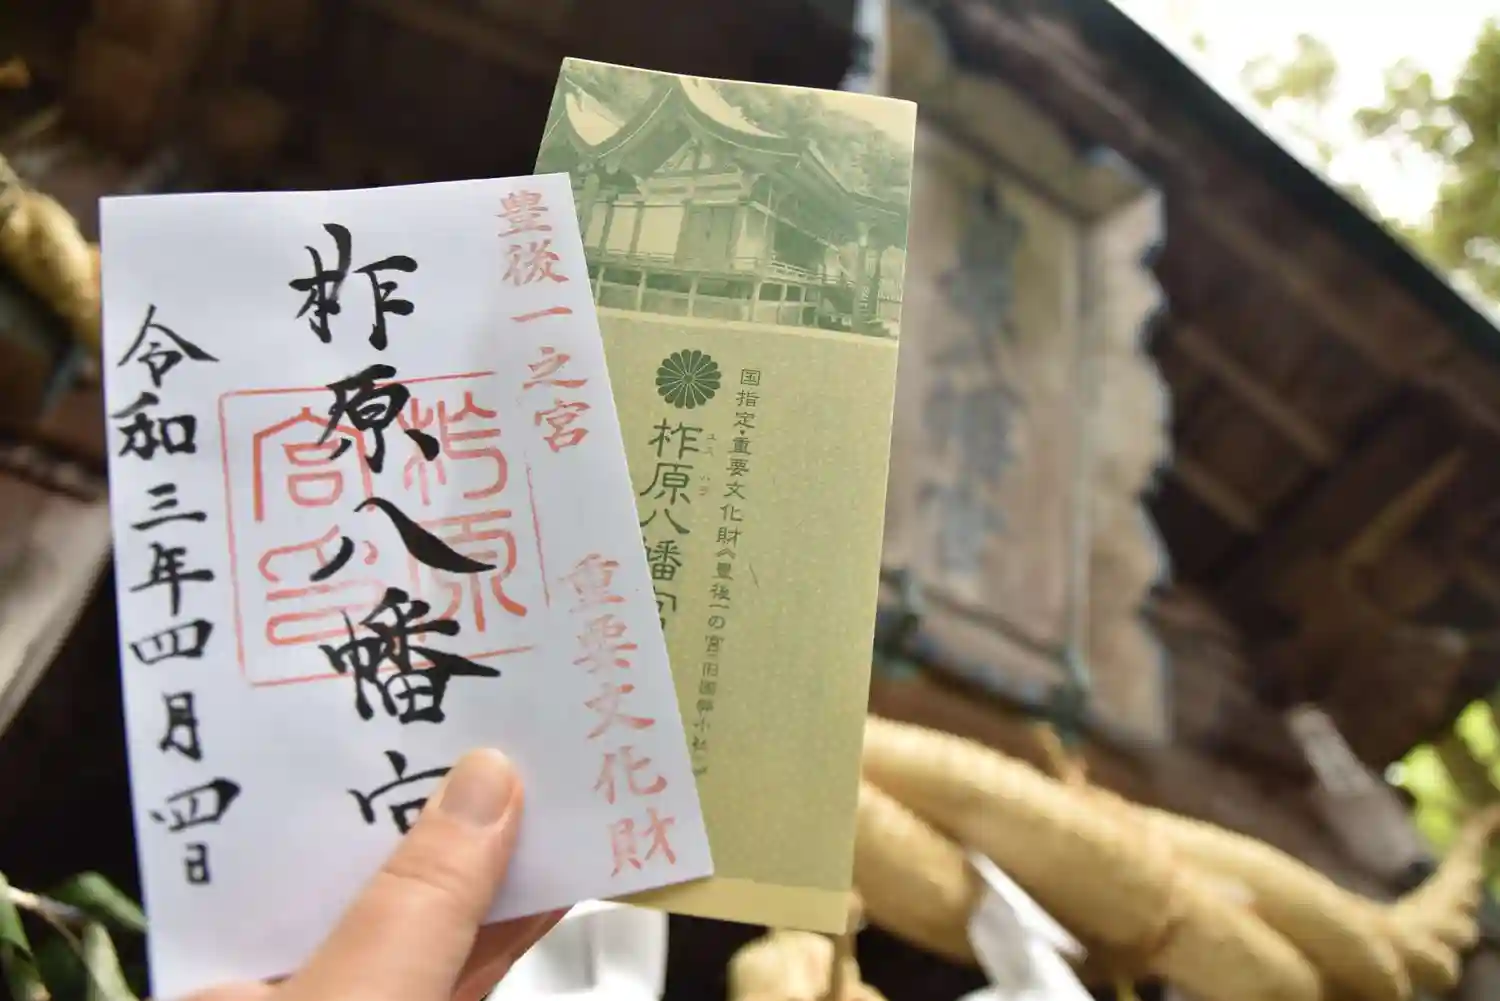 豊後一之宮 重要文化財
柞原八幡宮
柞原宮印
令和三年四月四日
国指定・重要文化財《豊後一の宮・旧国幣小社》
ユス ハラ
柞原八幡宮